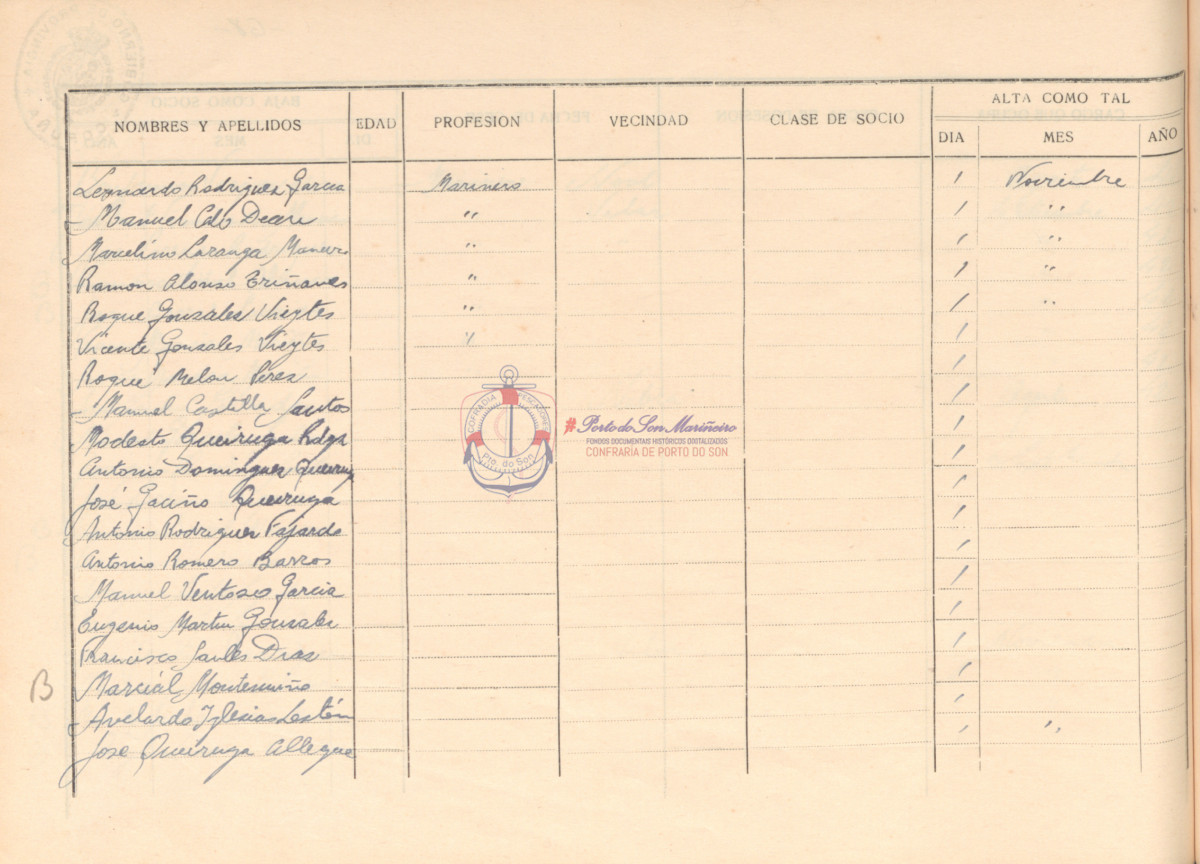 ALTA COMO TAL
NOMBRES Y APELLIDOS EDAD PROFESION VECINDAD CLASE DE SOCIO DIA MES AÑO
Leonardo Rodriguez Garcia Marinero 1 Noviembre
Manuel Cdo " 1 "
Marcelino Laranga " 1 "
Ramon Alonso Triñanes " 1 "
Roque Gonzales Vieytes " 1 "
Vicente Gonzales Vieytes " 1
Roque Melon Perez 1
Manuel Castilla Santos 1
Modesto Queiruga Rdga 1
Antonio Dominguez Queirug 1
José Gaciño Queiruga 1
Antonio Rodriguez Fajardo 1
Antonio Romero Barros 1
Manuel Ventoso Garcia 1
Eugenio Martin Gonzales 1
Francisco Saules Dias 1
B Marcial Montemuiño 1
Avelardo Iglesias Lestón 1
Jose Queiruga Allegue 1 "
COFRADIA PESCADORES
Pto. do Son
#PortodoSonMariñeiro
FONDOS DOCUMENTAIS HISTÓRICOS DIXITALIZADOS
CONFRARÍA DE PORTO DO SON